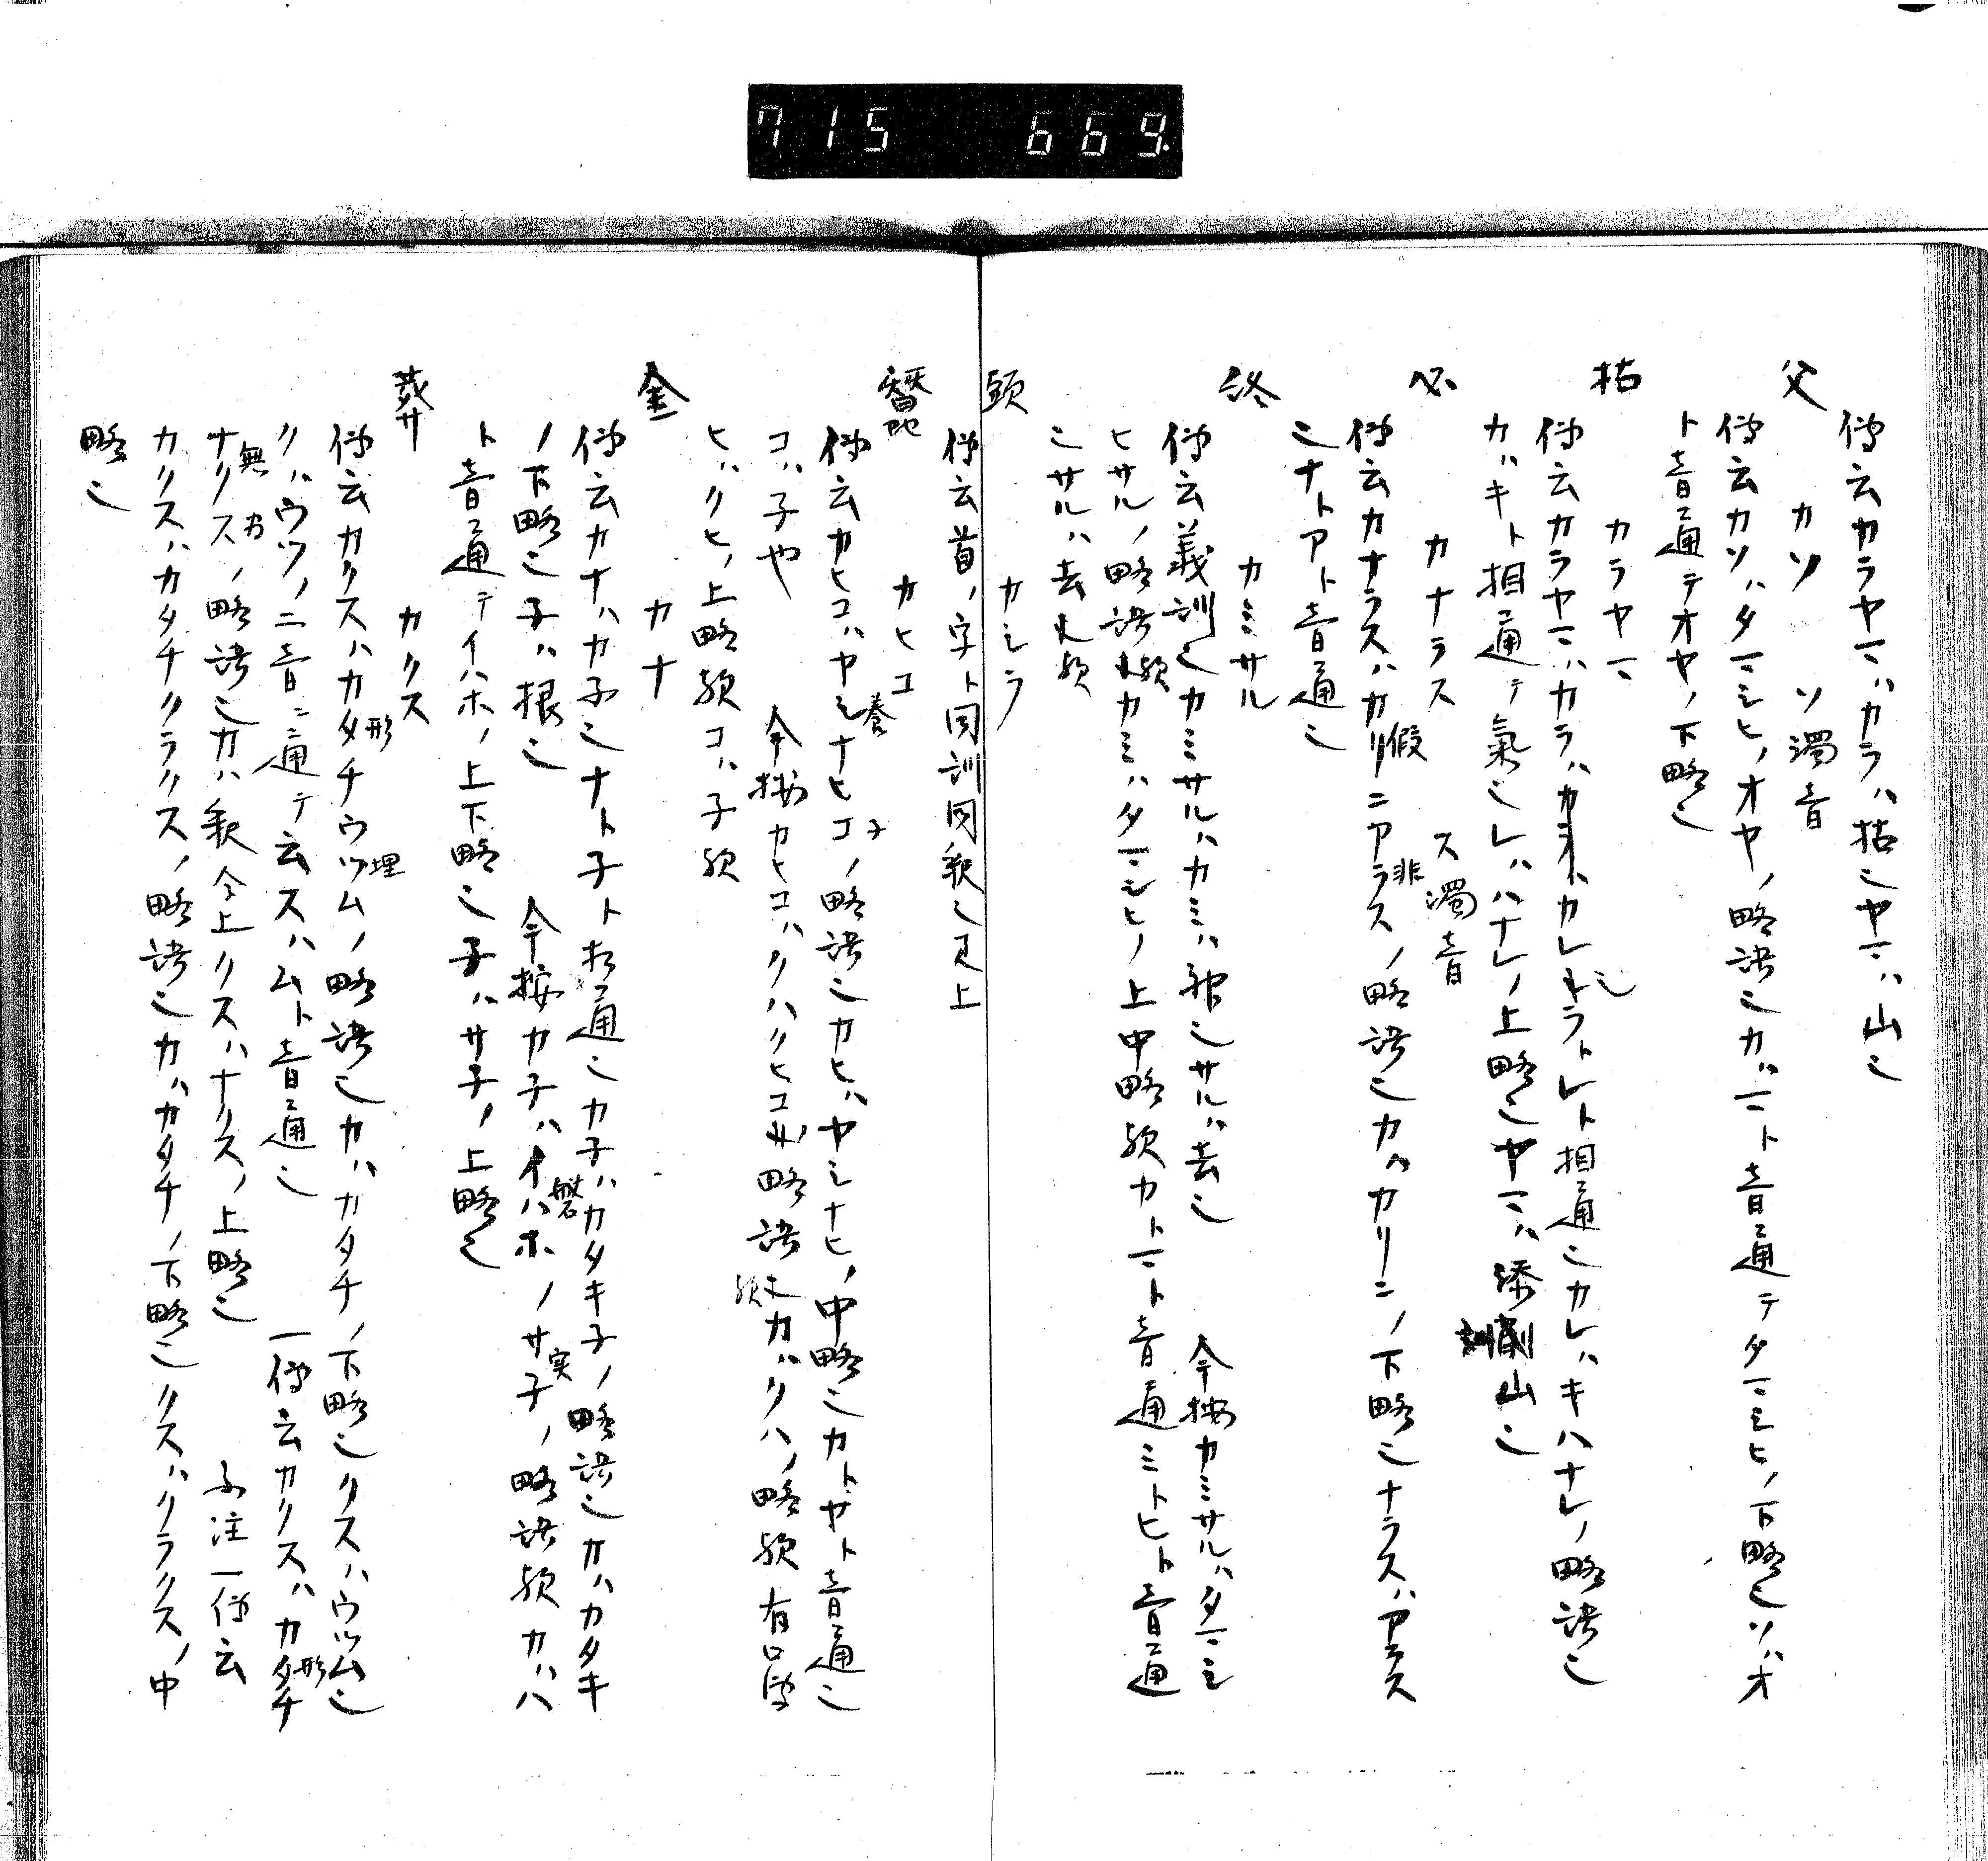 715 669
傳云カラヤマハカラハ枯ミヤマハ山ミ
父 カソ ソ濁音
傳云カソハタマシヒノオヤノ略語ミカハマト音通テタマシヒノ下略ミソハオ
ト音通テオヤノ下略ミ
枯 カラヤマ
傳云カラヤマハカラハカレミラトレト相通ミカレハキハナレノ略語ミ
カハキト相通テ氣ミレハハナレノ上略ミヤマハ添訓山ミ
必 カナラス ス濁音
傳云カナラスハカリ假ニアラス非ノ略語ミカハカリニノ下略ミナラスハアラス
ミナトアト音通ミ
終 カミサル
傳云義訓ミカミサルハカミハ神ミサルハ去ミ 今按カミサルハタマシ
ヒサルノ略語歟カミハタマシヒノ上中略歟カトマト音通ミトヒト音通
ミサルハ去也歟
頭 カシラ
傳云首ノ字ト同訓同釈ミ見上
蠶 カヒコ
傳云カヒコハヤシナヒコ養子ノ略語ミカヒハヤシナヒノ中略ミカトヤト音通ミ
コハ子や 今按カヒコハクハクヒコノ略語歟カハクハノ略歟有口傳
ヒハクヒノ上略歟コハ子歟
金 カナ
傳云カナハカ子ミナト子トお通ミカ子ハカタキ子ノ略語ミカハカタキ
ノ下略ミ子ハ根ミ 今按カ子ハイハホ磐ノサ子実ノ略語歟カハハ
ト音通テイハホノ上下略ミ子ハサ子ノ上略ミ
葬 カクス
傳云カクスハカタチ形ウツム埋ノ略語ミカハカタチノ下略ミクスハウツムミ
クハウツノ二音ニ通テ云スハムト音通ミ 一傳云カクスハカタチ形
ナクス無ノ略語ミカハ釈仝上クスハナクスノ上略ミ 予注一傳云
カクスハカタチクラクスノ略語ミカハカタチノ下略ミクスハクラクスノ中
略ミ